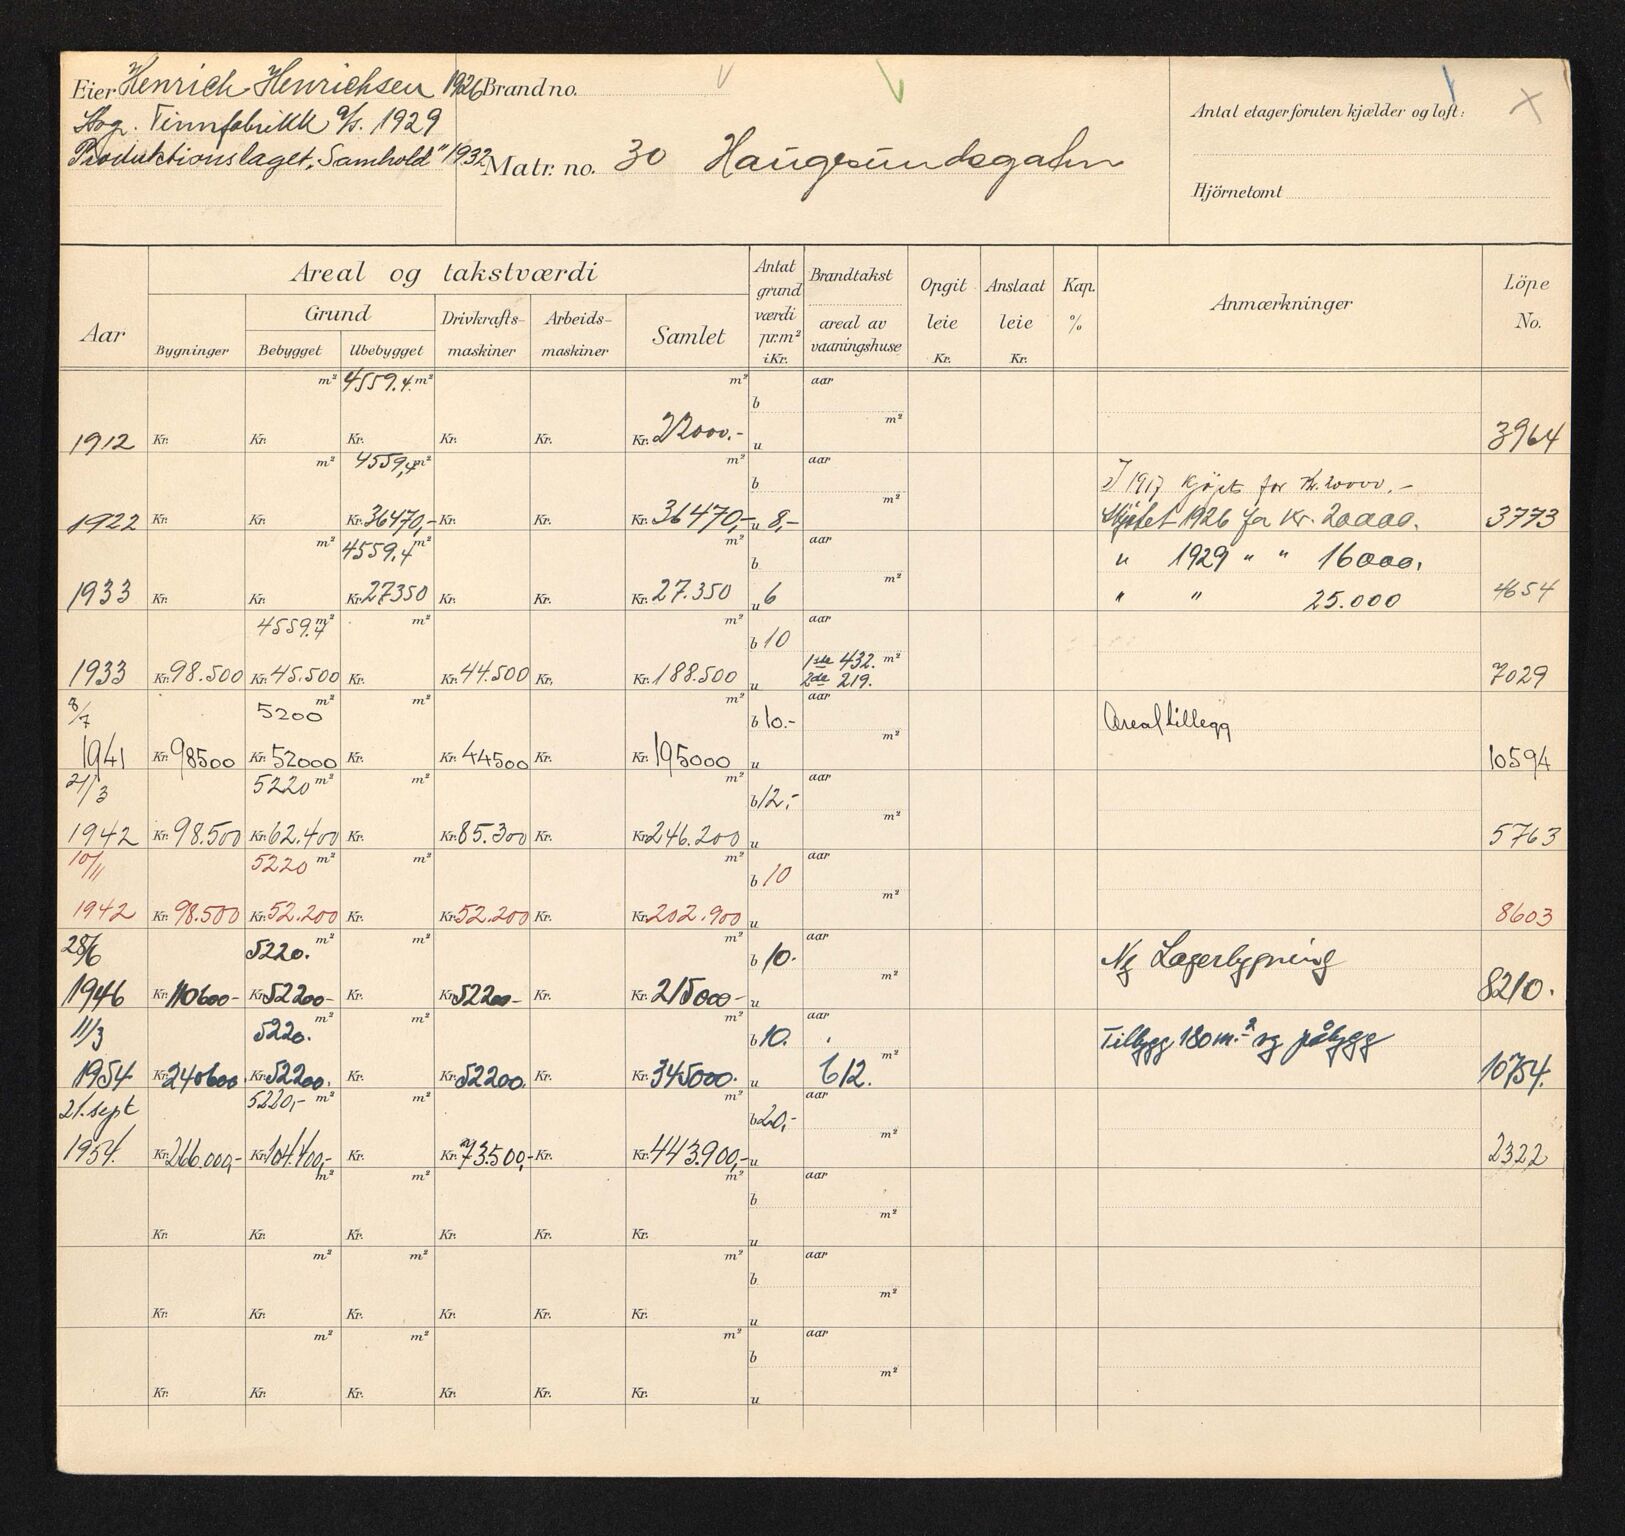 Eier Henrich Henrichsen 1926 Brand no.
Stvgr. Tinnfabrikk a/s. 1929
Produktionslaget "Samhold" 1932
Matr. no. 30 Haugesundsgaten
Antal etager foruten kjælder og loft:
Hjörnetomt
Aar
Areal og takstværdi
Bygninger
Grund
Bebygget Ubebygget
Drivkrafts-maskiner
Arbeids-maskiner
Samlet
Antat grund værdi pr. m² i Kr.
Brandtakst
areal av vaaningshuse
Opgit leie Kr.
Anslaat leie Kr.
Kap. %
Anmærkninger
Löpe No.
m² 4559.4 m² m² aar
b
m²
1912 Kr. Kr. Kr. Kr. Kr. Kr. 22000.- u 3964
m² 4559,4 m² m² aar
b I 1917 kjøpt for Kr. 20000.-
m²
1922 Kr. Kr. Kr. 36470,- Kr. Kr. Kr. 36470,- u 8,- Skjøtet 1926 for Kr. 20000. 3773
m² 4559.4 m² m² aar
b " 1929 " " 16000.
m²
1933 Kr. Kr. Kr. 27350 Kr. Kr. Kr. 27.350 u 6 " " 25.000 4654
4559.4 m² m² m² aar
b 10
1ste 432. m²
1933 Kr. 98.500 Kr. 45.500 Kr. Kr. 44.500 Kr. Kr. 188.500 u 2de 219. 7029
8/7 5200 m² m² m² aar
b 10.- Arealtillegg
m²
1941 Kr. 98500 Kr. 52000 Kr. Kr. 44500 Kr. Kr. 195000 u 10594
21/3 5220 m² m² m² aar
b 12,-
m²
1942 Kr. 98.500 Kr. 62.400 Kr. Kr. 85.300 Kr. Kr. 246.200 u 5763
10/11 5220 m² m² m² aar
b 10
m²
1942 Kr. 98.500 Kr. 52.200 Kr. Kr. 52.200 Kr. Kr. 202.900 u 8603
28/6 5220. m² m² m² aar
b 10. Ny Lagerbygning
m²
1946 Kr. 110600- Kr. 52200- Kr. Kr. 52200- Kr. Kr. 215000- u 8210.
11/3 5220. m² m² m² aar
b 10. Tilbygg 180 m.² og påbygg
m²
1954 Kr. 240600 Kr. 52200. Kr. Kr. 52200. Kr. Kr. 345000. u 612. 10754.
21. sept 5220,- m² m² m² aar
b 20,-
m²
1954. Kr. 266.000,- Kr. 104.400,- Kr. Kr. 73.500,- Kr. Kr. 443.900,- u 2322
m² m² m² aar
b
m²
Kr. Kr. Kr. Kr. Kr. Kr. u
m² m² m² aar
b
m²
Kr. Kr. Kr. Kr. Kr. Kr. u
m² m² m² aar
b
m²
Kr. Kr. Kr. Kr. Kr. Kr. u